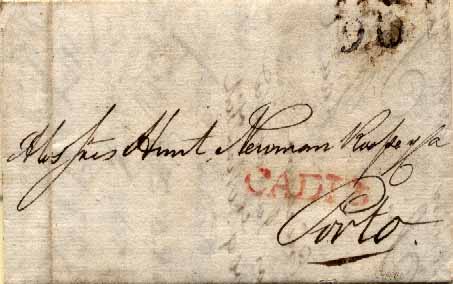 90
Aos Snres Hunt Newman Roope & Ca
CADIZ
Porto.